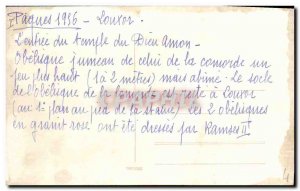 Pâques 1956 - Louxor.
L'entrée du temple du Dieu Amon -
Obélisque jumeau de celui de la concorde un
peu plus haut (1 à 2 mètres) mais abimé - le socle
de l'obélisque de la Concorde est resté à Louxor
(au 1er plan au pied de la statue) Les 2 obélisques
en granit rose ont été dressés par Ramses II